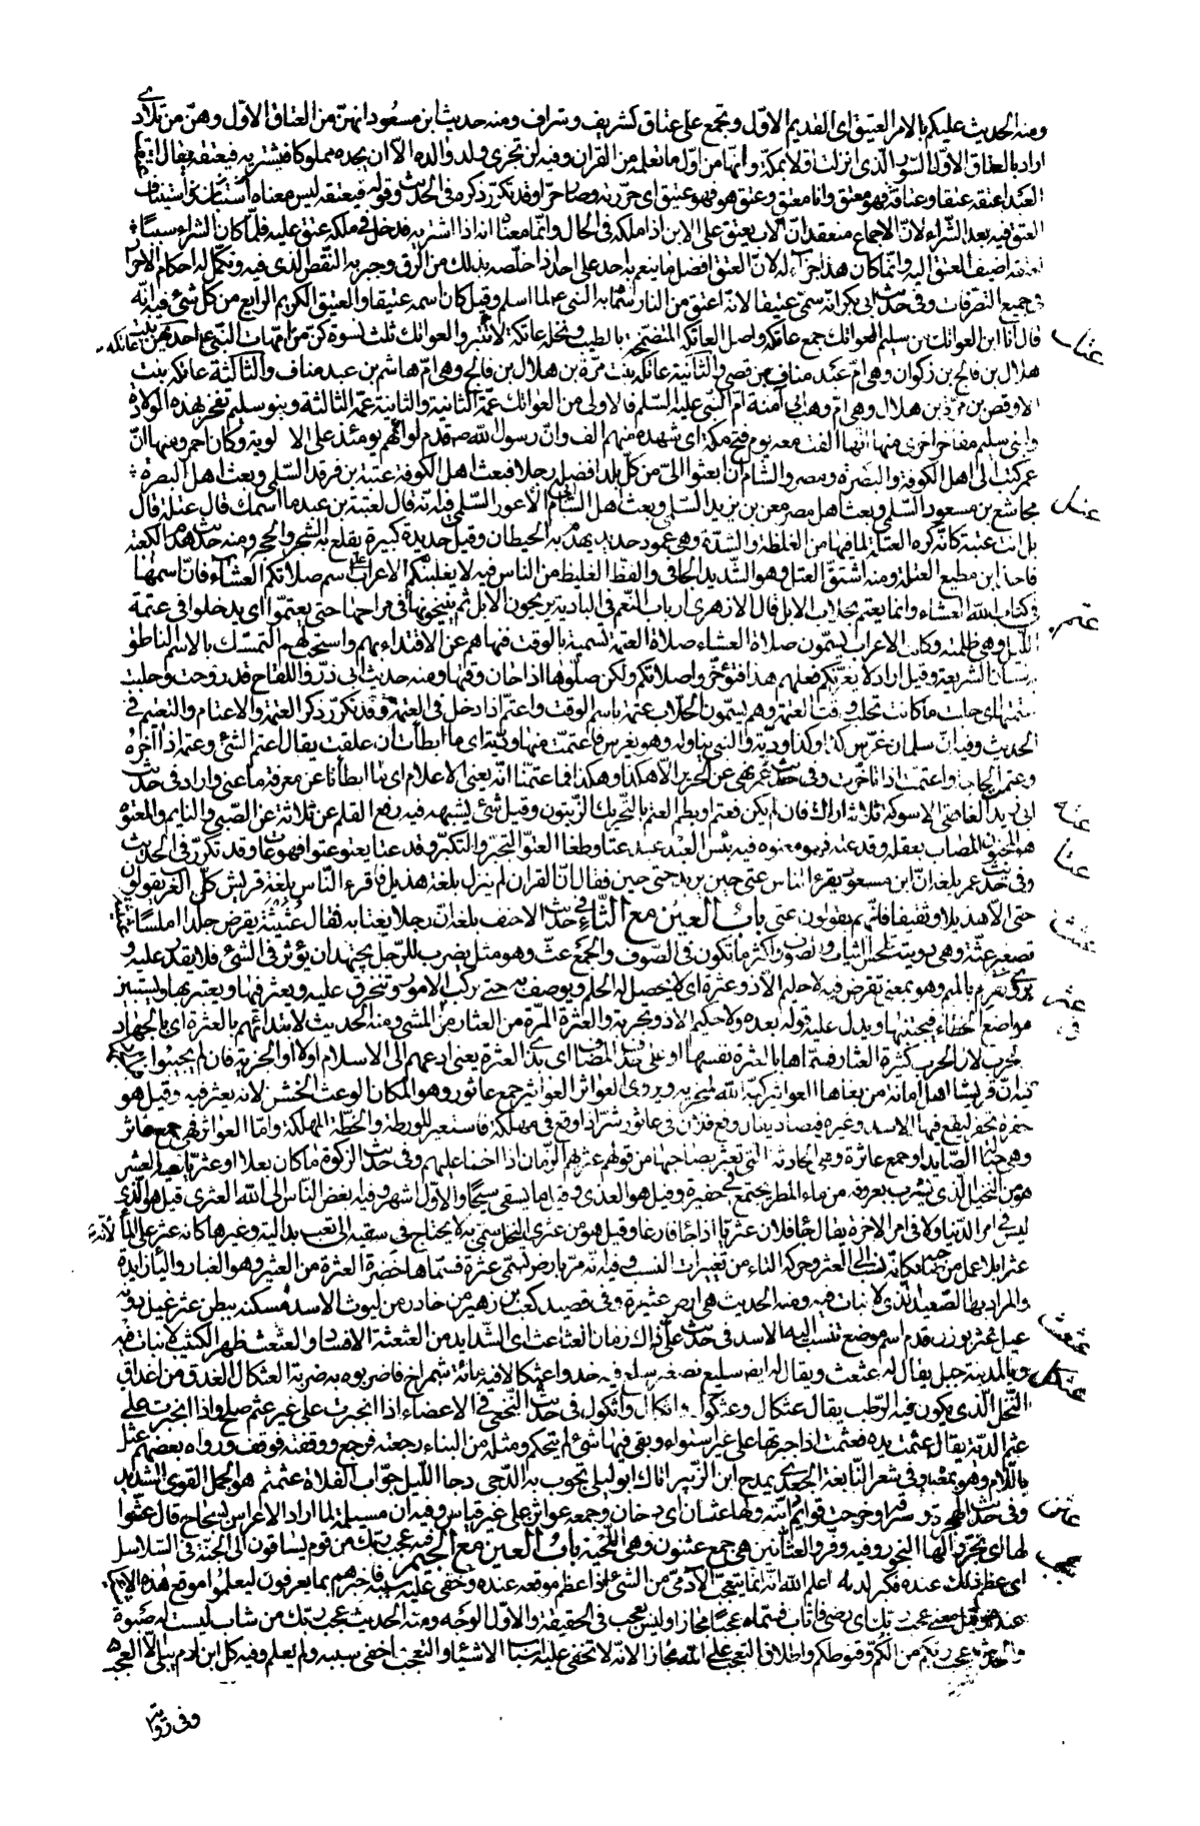 ومنه الحديث عليكم بالامر العتيق اى القديم الاوّل ويجمع على عتاق كشريف وشراف ومنه حديث ابن مسعود انهنّ من العتاق الاوّل وهنّ من تلادى
اراد بالعتاق الاول السّور الّذى انزلت اوّلا بمكّة وانّها من اوّل ما تعلّمه من القران وفيه لن يجزى ولد والده الّا ان يجده مملوكا فيشتريه فيعتقه يقال
العبد اعتقه عتقا وعتاقة فهو معتق وانا معتق وعتق هو فهو عتيق اى حرّرته وصار حرا وقد تكرّر ذكره فى الحديث وقوله فيعتقه ليس معناه استيناف
العتق فيه بعد الشّراء لانّ الاجماع منعقد انّ الاب يعتق على الابن اذا ملكه فى الحال وانّما معناه انه اذا اشتريه فدخل فى ملكه عتق عليه فلمّا كان الشراء سببا
لعتقه اضيف العتق اليه وانّما كان هذا جزاء له لانّ العتق افضل ما ينعم به احد على احد اذا خلّصه بذلك من الرّق وجبر به النّقص الّذى فيه وتكمّل له احكام الاحرار
فى جميع التصرفات وفى حديث ابى بكر انّه سمّى عتيقا لانّه اعتق من النار سمّاه به النبى لما اسلم وقيل كان اسمه عتيقا والعتيق الكريم الرايع من كل شئ فيه انّه
عتك
قال انا ابن العواتك من سليم العواتك جمع عاتكة واصل العاتكة المتضمّخة بالطيب ونخلة عاتكة لا تأتبر والعواتك ثلث نسوة كنّ من امّهات النّبى احديهنّ عاتكة بنت
هلال بن فالج بن ذكوان وهى امّ عبد مناف بن قصى والثّانية عاتكة بنت مرّة بن هلال بن فالج وهى امّ هاشم بن عبد مناف والثالثة عاتكة بنت
الاوقص بن مرّة بن هلال وهى امّ وهب ابى آمنة امّ النّبى عليه السّلم فالاولى من العواتك عمّة الثانية والثانية عمّة الثالثة وبنو سليم تفخر بهذه الولادة
ولبنى سليم مفاخر اخرى منها انّها الفت معه يوم فتح مكة اى شهده منهم الف وانّ رسول الله ص قدم لواءهم يومئذ على الالوية وكان احمر ومنها انّ
عمر كتب الى اهل الكوفة والبصرة ومصر والشّام ان ابعثوا الىّ من كلّ بلد افضله رجلا فبعث اهل الكوفة عتبة بن فرقد السّلمى وبعث اهل البصرة
عتل
مجاشع بن مسعود السّلمى وبعث اهل مصر معن بن يزيد السّلمى وبعث اهل الشام ابا الاعور السّلمى فيه انّه قال لعتبة بن عبد ما اسمك قال عتلة قال
بل انت عتبة كانّه كره العتلة لما فيها من الغلظة والشدّة وهى عمود حديد يهدم به الحيطان وقيل حديدة كبيرة يقلع به الشّجر والحجر ومنه حديث هدم الكعبة
فاخذ ابن مطيع العتلة ومنه اشتقّ العتل وهو الشّديد الجافى والفظّ الغليظ من الناس فيه لا يغلبنّكم الاعراب على اسم صلاتكم العشاء فانّ اسمها
عتم
فى كتاب الله العشاء وانّما يعتم بحلاب الابل قال الازهرى ارباب النّعم فى البادية يريحون الابل ثم ينيخونها فى مراحها حتى يعتموا اى يدخلوا فى عتمة
اللّيل وهى ظلمته وكانت الاعراب يسمّون صلاة العشاء صلاة العتمة تسمية بالوقت فنهاهم عن الاقتداء بهم واستحبّ لهم التمسّك بالاسم الناطق
به لسان الشريعة وقيل اراد لا يغرّنكم فعلهم هذا فتؤخّروا صلاتكم ولكن صلّوها اذا حان وقتها ومنه حديث ابى ذرّ واللقاح قد روّحت وحلبت
عتمتها اى حلبت ما كانت تحلب وقت العتمة وهم يسمّون الحلاب عتمة باسم الوقت واعتم اذا دخل فى العتمة وقد تكرّر ذكر العتمة والاعتام والتعتيم فى
الحديث وفيه انّ سلمان غرس كذا وكذا وديّة والنبى يناوله وهو يغرس فما عتمت منها وديّة اى ما ابطأت ان علقت يقال اعتم الشّئ وعتمه اذا اخّره
وعتمت الحاجة واعتمت اذا تاخّرت وفى حديث عمر نهى عن الحرير الّا هكذا وهكذا فما عتمنا انّه يعنى الاعلام اى ما ابطأنا عن معرفة ما عنى واراد فى حديث
عته
ابى زيد الغافقى الاسوكة ثلاثة اراك فان لم يكن فعتم او بطم العتم بالتّحريك الزّيتون وقيل شئ يشبهه فيه رفع القلم عن ثلاثة عن الصّبى والنايم والمعتوه
عتا
هو المجنون المصاب بعقله وقد عته فهو معتوه فيه بئس العبد عبد عتا وطغا العتوّ التجبّر والتكبّر وقد عتا يعتو عتوا فهو عات وقد تكرّر فى الحديث
وفى حديث عمر بلغه انّ ابن مسعود يقرئ الناس عتى حين يريد حتى حين فقال انّ القران لم ينزل بلغة هذيل فاقرء النّاس بلغة قريش كلّ العرب يقولون
عثث
حتى الّا هذيلا وثقيفا فانّهم يقولون عتى باب العين مع الثّاء فى حديث الاحنف بلغه انّ رجلا يغتابه فقال عثيثة يقرض جلدا املسا عثيثة
تصغير عثّة وهى دويبة تلحس الثياب والصّوف واكثر ما تكون فى الصّوف والجمع عثّ وهو مثل يضرب للرّجل يجتهد ان يؤثر فى الشئ فلا يقدر عليه و
عثر
يروى تقرم بالميم وهو بمعنى تقرض فيه لا حليم الّا ذو عثرة اى لا يحصل له الحلم ويوصف به حتى يركب الامور وتنخرق عليه ويعثر فيها ويعتبر بها ويستبين
مواضع الخطاء فيجتنبها ويدل عليه قوله بعده ولا حكيم الّا ذو تجربة والعثرة المرّة من العثار من المشى ومنه الحديث لا تبدأهم بالعثرة اى بالجهاد
والحرب لان الحرب كثيرة العثار فسمّاها بالعثرة نفسها او على حذف المضاف اى بذى العثرة يعنى ادعهم الى الاسلام اولا او الجزية فان لم يجيبوا
فيه انّ قريشا اهل امانة من بغاها العواثير كبّه الله لمنخريه ويروى العواثر العواثير جمع عاثور وهو المكان الوعث الخشن لانه يعثر فيه وقيل هو
حفرة تحفر ليقع فيها الاسد وغيره فيصاد يقال وقع فلان فى عاثور شرّ اذا وقع فى مهلكة فاستعير للورطة والخطّة المهلكة وامّا العواثر فهى جمع عاثر
وهى حبالة الصّايد او جمع عاثرة وهى الحادثة التى تعثر بصاحبها من قولهم عثر بهم الزّمان اذا اخنا عليهم وفى حديث الزكوة ما كان بعلا او عثريّا ففيه العشر
هو من النّخيل الّذى يشرب بعروقه من ماء المطر يجتمع فى حفيرة وقيل هو العذى وقيل ما يسقى سيحا والاوّل اشهر وفيه ابغض النّاس الى الله العثرى قيل هو الّذى
ليس فى امر الدّنيا ولا فى امر الاخرة يقال جاء فلان عثريّا اذا جاء فارغا وقيل هو من عثرى النخل سمّى به لانه لا يحتاج فى سقيه الى تعب بدالية وغيرها كانه عثر على الماء لانّه
عثرا بلا عمل من صاحبه فكانّه نسب الى العثر وحركة الثاء من تغييرات النسب وفيه انّه مرّ بارض تسمّى عثرة فسمّاها خضرة العثرة من العثير وهو الغبار والياء زايدة
والمراد بها الصّعيد الّذى لا نبات فيه ومنه الحديث هى ارض عثيرة وفى قصيد كعب بن زهير من خادر من ليوث الاسد مسكنه ببطن عثر غيل دونه
عثعث
غيل عثر بوزن قدم اسم موضع تنسب اليه الاسد فى حديث علىّ ذاك زمان العثاعث اى الشّدايد من العثعثة الافساد والعثعث ظهر الكثيب لا نبات فيه
عثكل
وبالمدينة جبل يقال له عثعث ويقال له ايض سليع تصغير سلع فيه خذوا عثكالا فيه مائة شمراخ فاضربوه به ضربة العثكال العذق من اعذاق
النّخل الّذى يكون فيه الرّطب يقال عثكال وعثكول واثكال واثكول فى حديث النّخعى فى الاعضاء اذا انجبرت على غير عثم صلح واذا انجبرت على
عثم الدّية يقال عثمت يده فعثمت اذا جبرتها على غير استواء وبقى فيها شئ لم يتحكم ومثله من البناء رجعته فرجع ووقفته فوقف ورواه بعضهم عثل
باللّام وهو بمعناه وفى شعر النّابغة الجعدى يمدح ابن الزّبير اتاك ابو ليلى تجوب به الدّجى دجا اللّيل جوّاب الفلاة عثمثم هو الجمل القوى الشديد
عثن
وفى حديث الهجرة وخرجت قوائم دابّته ولها عثان اى دخان وجمعه عواثن على غير قياس وفيه ان مسيلمة لما اراد الاعراس بسجاح قال عثّنوا
عجب
لها اى بخّروا لها البخور وفيه وفّروا العثانين هى جمع عثنون وهى اللّحية باب العين مع الجيم فيه عجب ربّك من قوم يساقون الى الجنّة فى السّلاسل
اى عظم ذلك عنده وكبر لديه اعلم الله انّه انّما يتعجّب الآدمىّ من الشئ اذا عظم موقعه عنده وخفى عليه سببه فاخبرهم بما يعرفون ليعلموا موقع هذه الاشياء
عنده وقيل معنى عجب ربّك اى رضى فاثاب فسمّاه عجبا مجازا وليس بعجب فى الحقيقة والاوّل الوجه ومنه الحديث عجب ربّك من شابّ ليست له صبوة
والحديث عجب ربّكم من الّكم وقنوطكم واطلاق التعجّب على الله مجاز لانّه لا تخفى عليه اسباب الاشياء والتعجّب ممّا خفى سببه ولم يعلم وفيه كل ابن ادم يبلى الّا العجب
وفى رواية